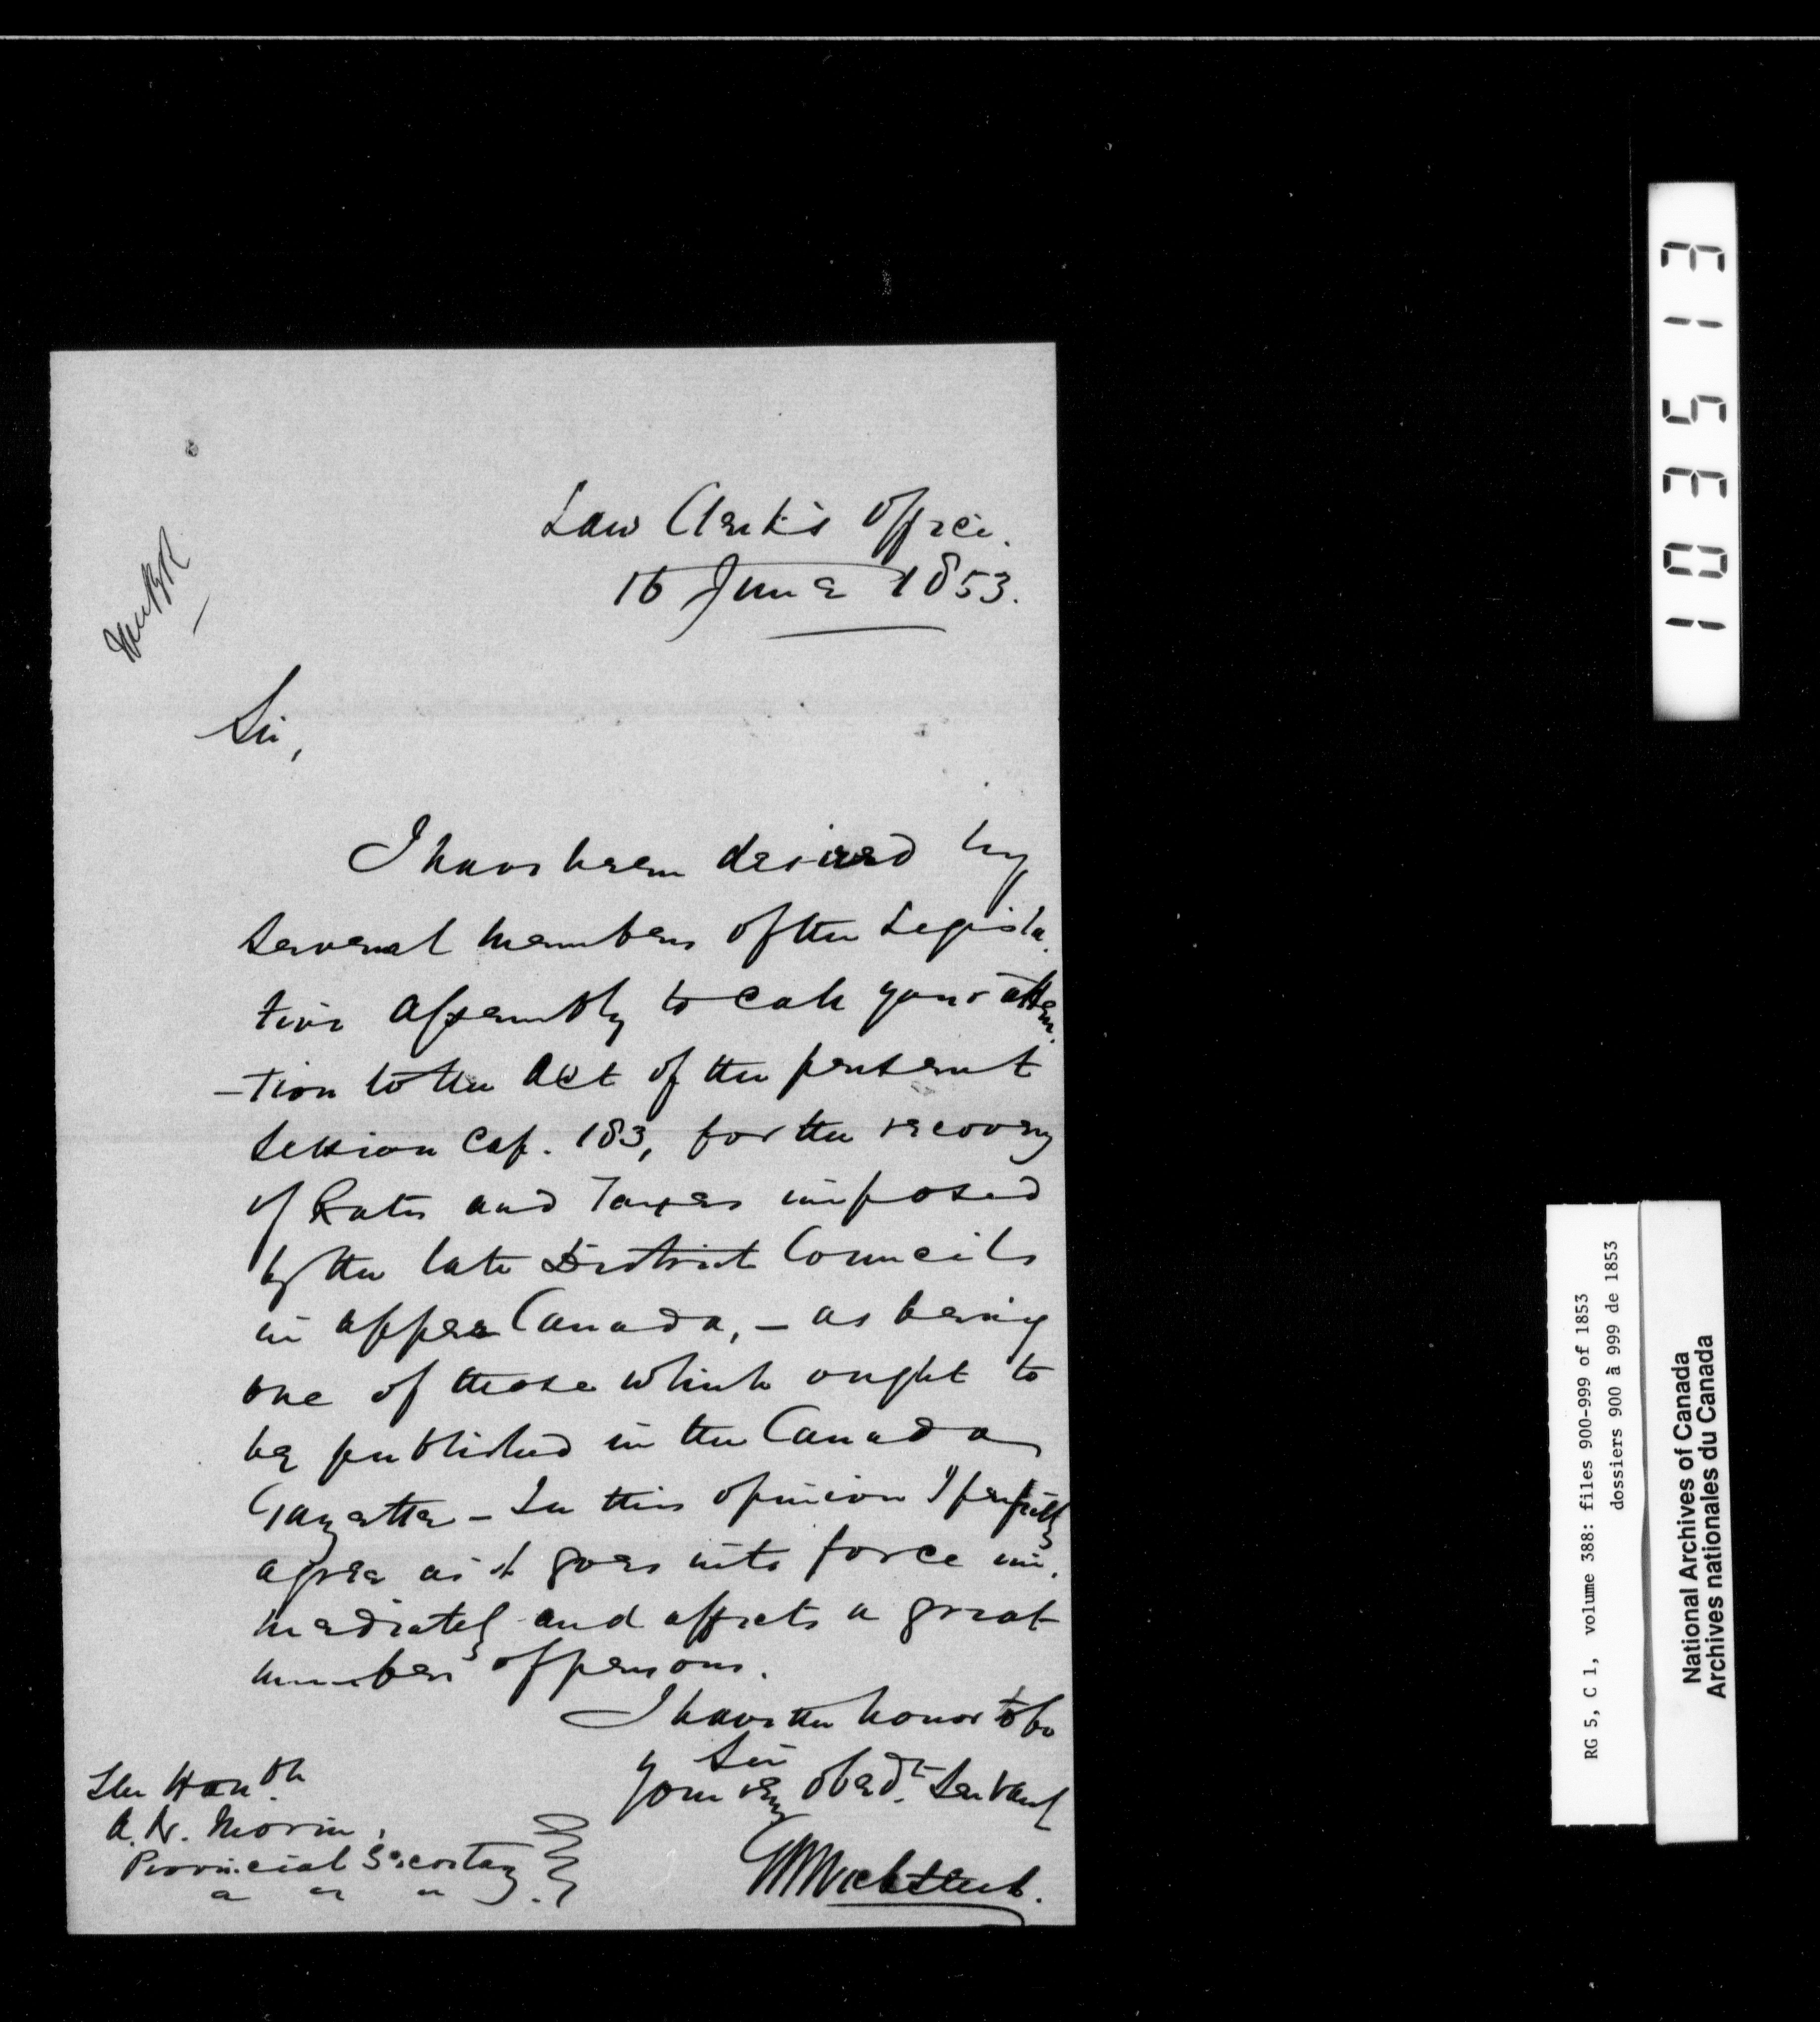 Law Clerk's Office.
16 June 1853.
Sir,
I have been desired by
several members of the Legisla-
tive Assembly to call your atten-
-tion to the Act of the present
Session Cap. 183, for the recovery
of Rates and Taxes imposed
by the late District Councils
in Upper Canada, – as being
one of those which ought to
be published in the Canada
Gazette – In this opinion I perfectly
agree as it goes into force im-
mediately and affects a great
number of persons.
I have the honor to be
Sir
Your very obedt. Servant
GWWicksteed.
The Honble
A. N. Morin,
Provincial Secretary
103513
RG 5, C 1, volume 388: files 900-999 of 1853
dossiers 900 à 999 de 1853
National Archives of Canada
Archives nationales du Canada